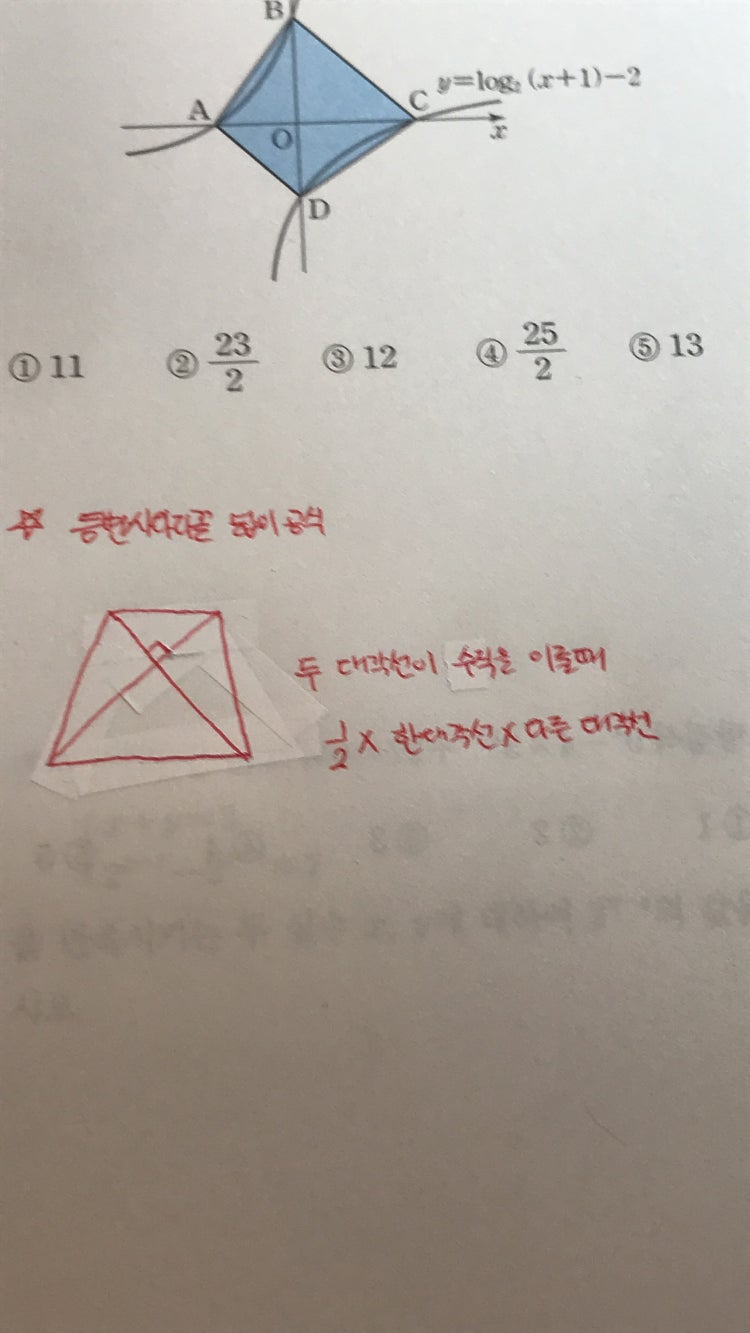 B
y=log₂ (x+1)-2
A
C
O
x
D
① 11 ② 23/2 ③ 12 ④ 25/2 ⑤ 13
☆ 등변사다리꼴 넓이 공식
두 대각선이 수직을 이룰때
1/2 x 한대각선 x 다른 대각선